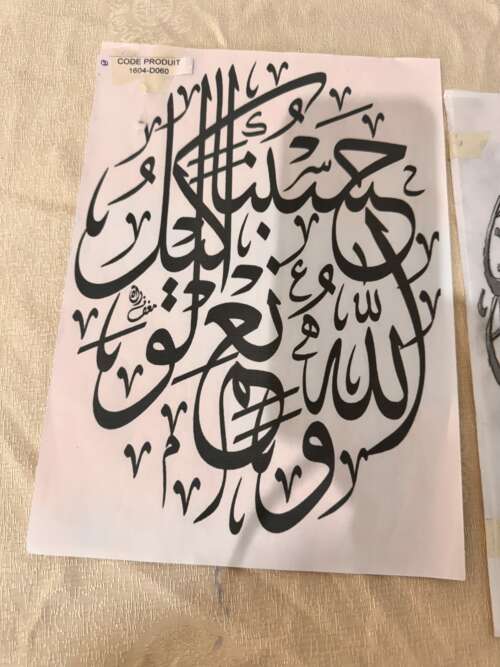 CODE PRODUIT
1604-D060
حسبنا الله ونعم الوكيل